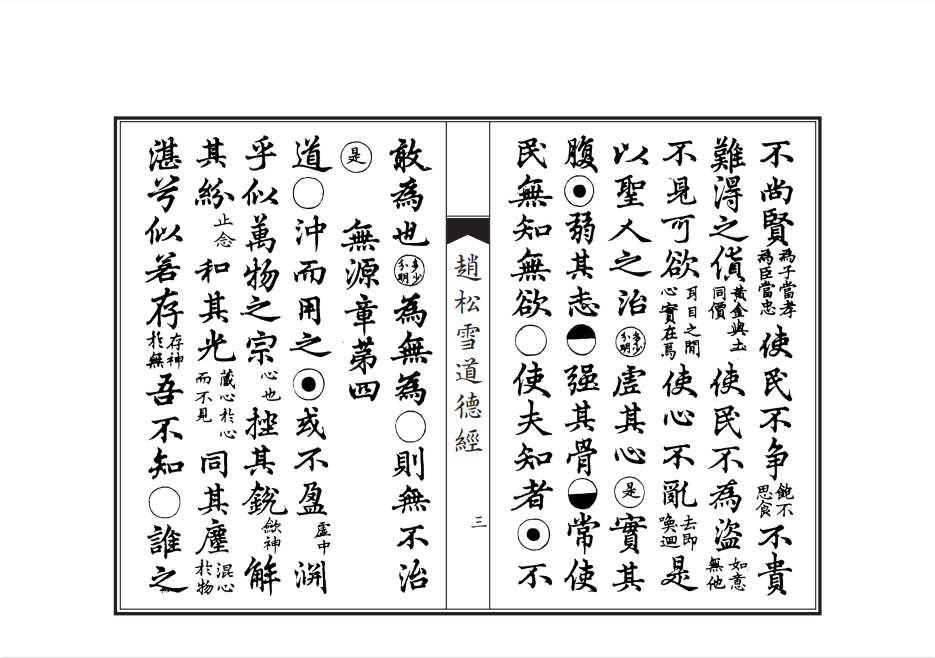 不尚賢為子當孝為臣當忠使民不争飽不思食不貴
難得之貨黃金與土同價使民不為盜如意無他
不見可欲耳目之間心實在焉使心不亂去即喚迴是
以聖人之治多少分明虛其心是實其
腹弱其志强其骨常使
民無知無欲使夫知者不
趙松雪道德經
三
敢為也多少分明為無為則無不治
是
無源章第四
道沖而用之或不盈虛中淵
乎似萬物之宗心也挫其銳斂神解
其紛止念和其光藏心於心而不見同其塵混心於物
湛兮似若存存神於無吾不知誰之